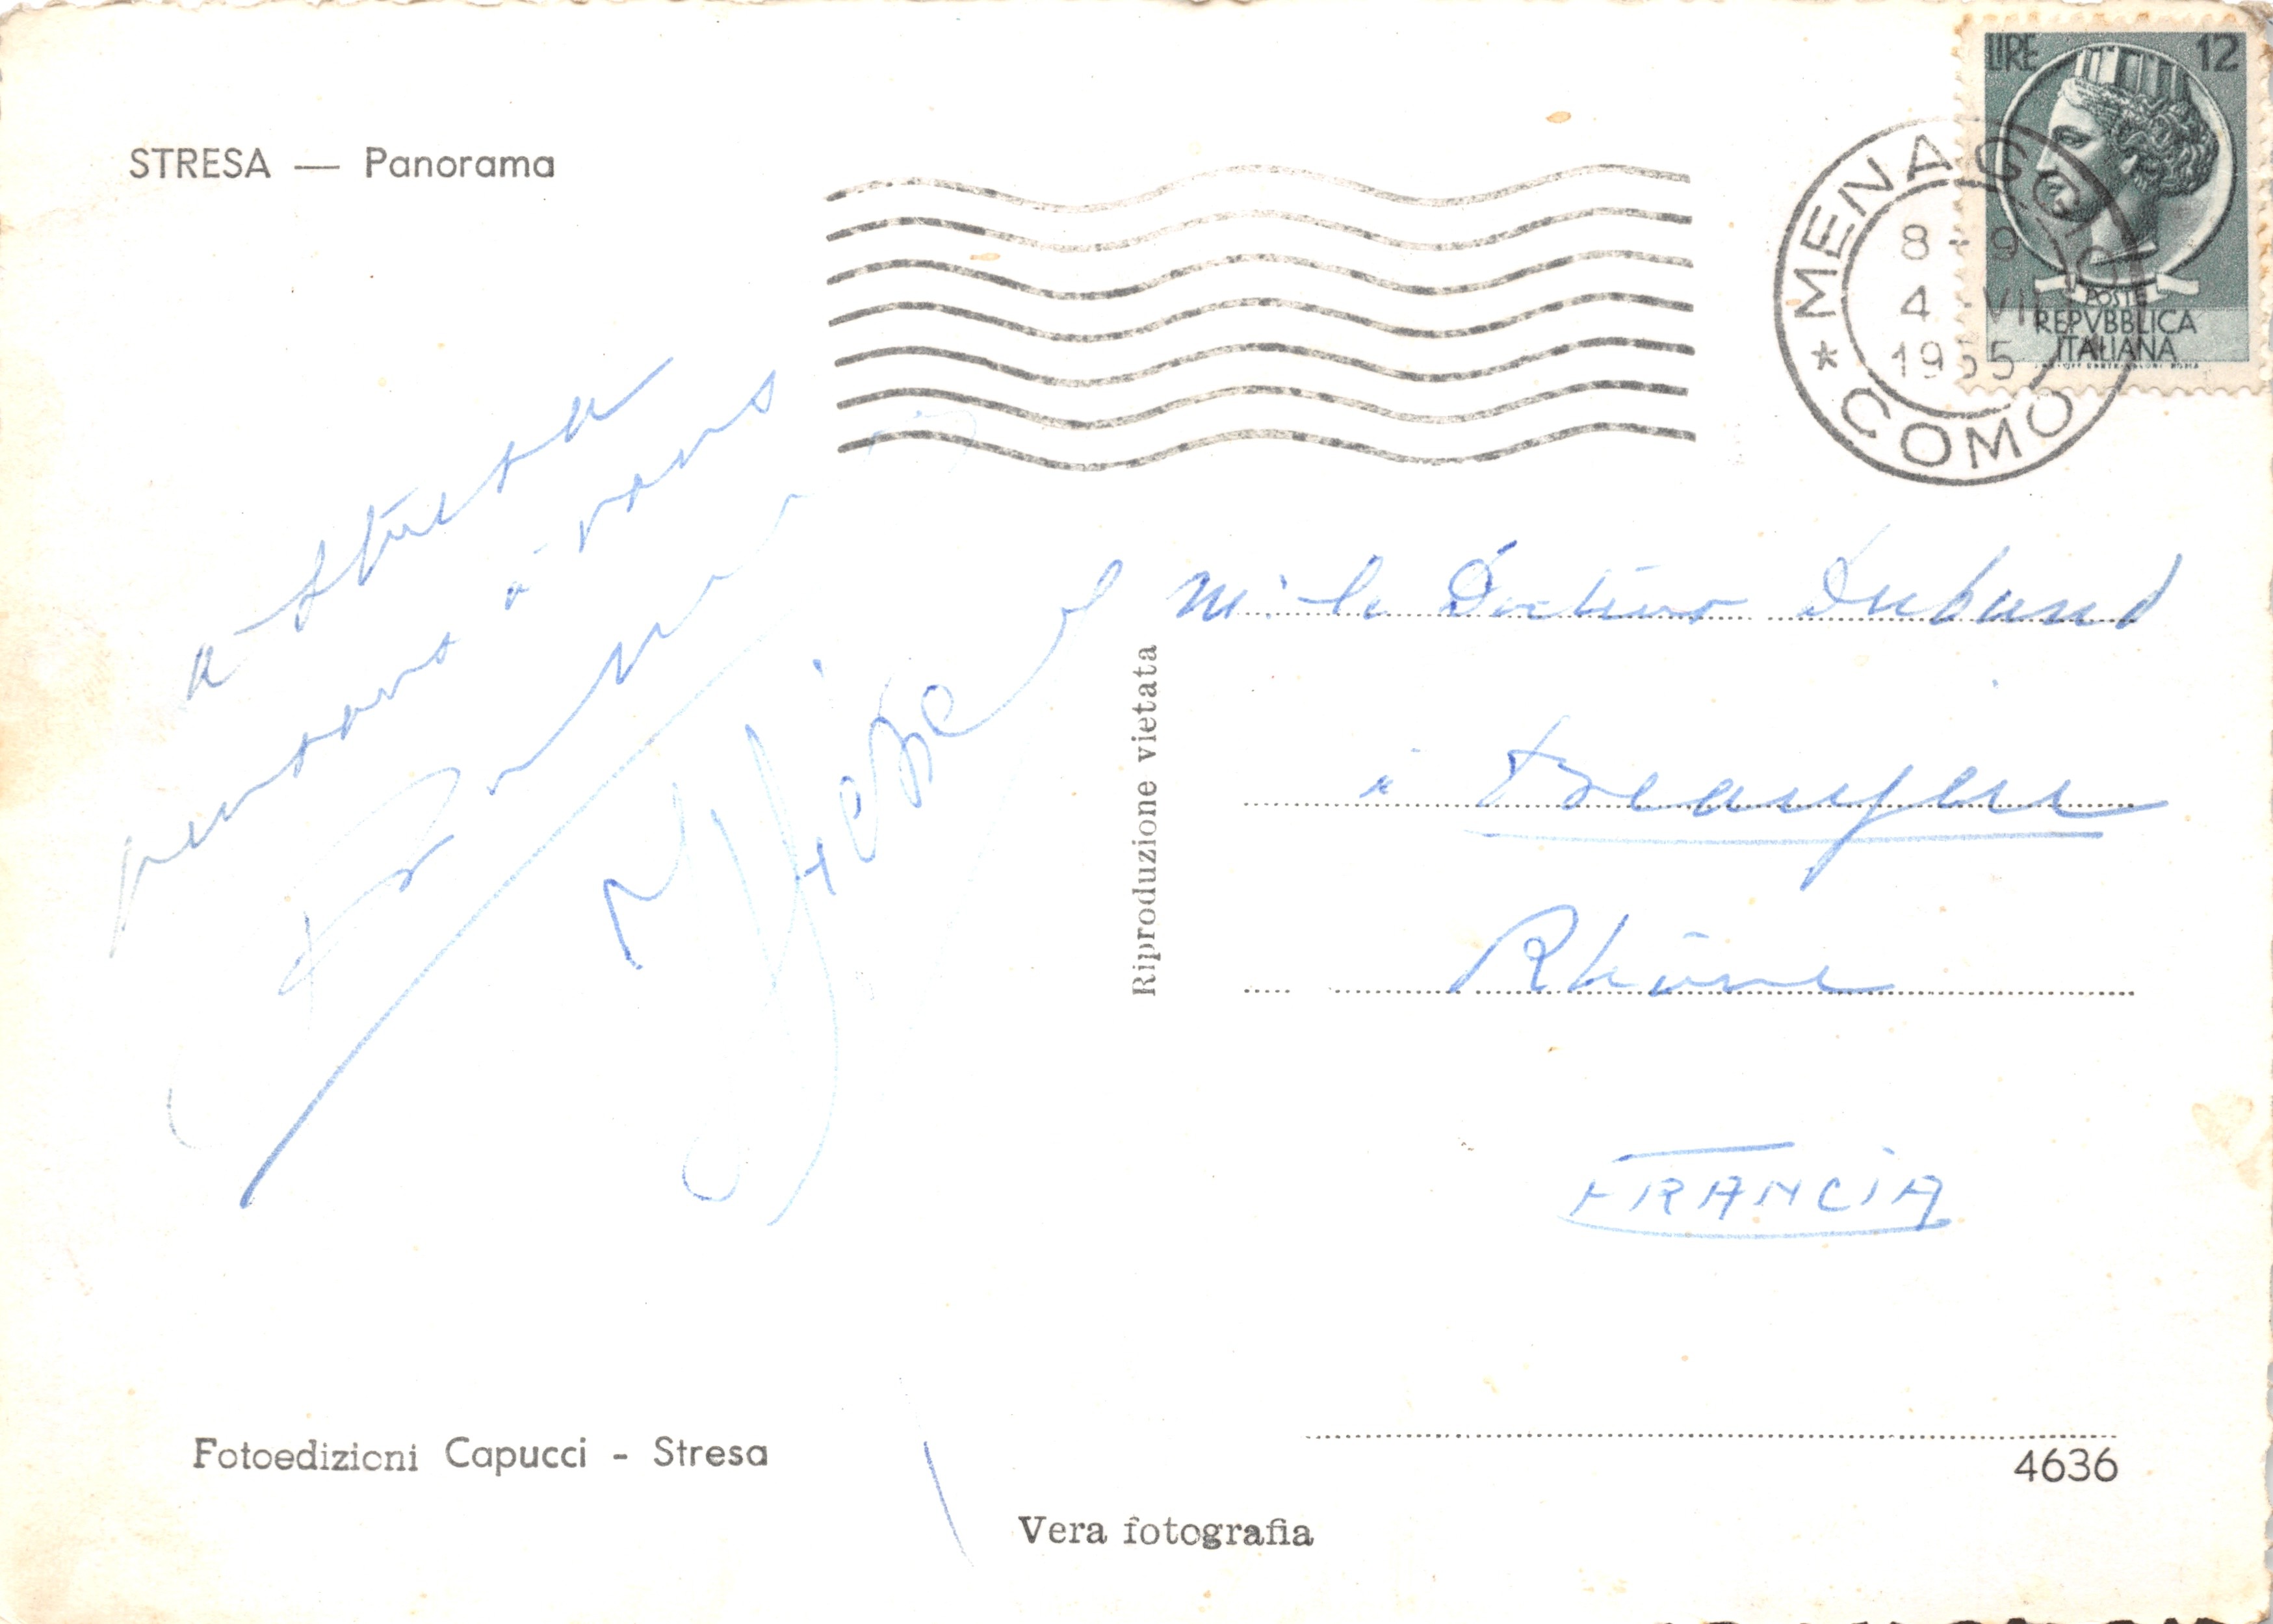 STRESA — Panorama
LIRE 12
POSTE
REPVBBLICA
ITALIANA
MENAGGIO
8-9
4 VII
1955
* COMO
a Stresa
pensons à vous
Mr le Docteur Duband
à Beaujeu
Rhône
FRANCIA
Riproduzione vietata
Fotoedizioni Capucci - Stresa
4636
Vera fotografia